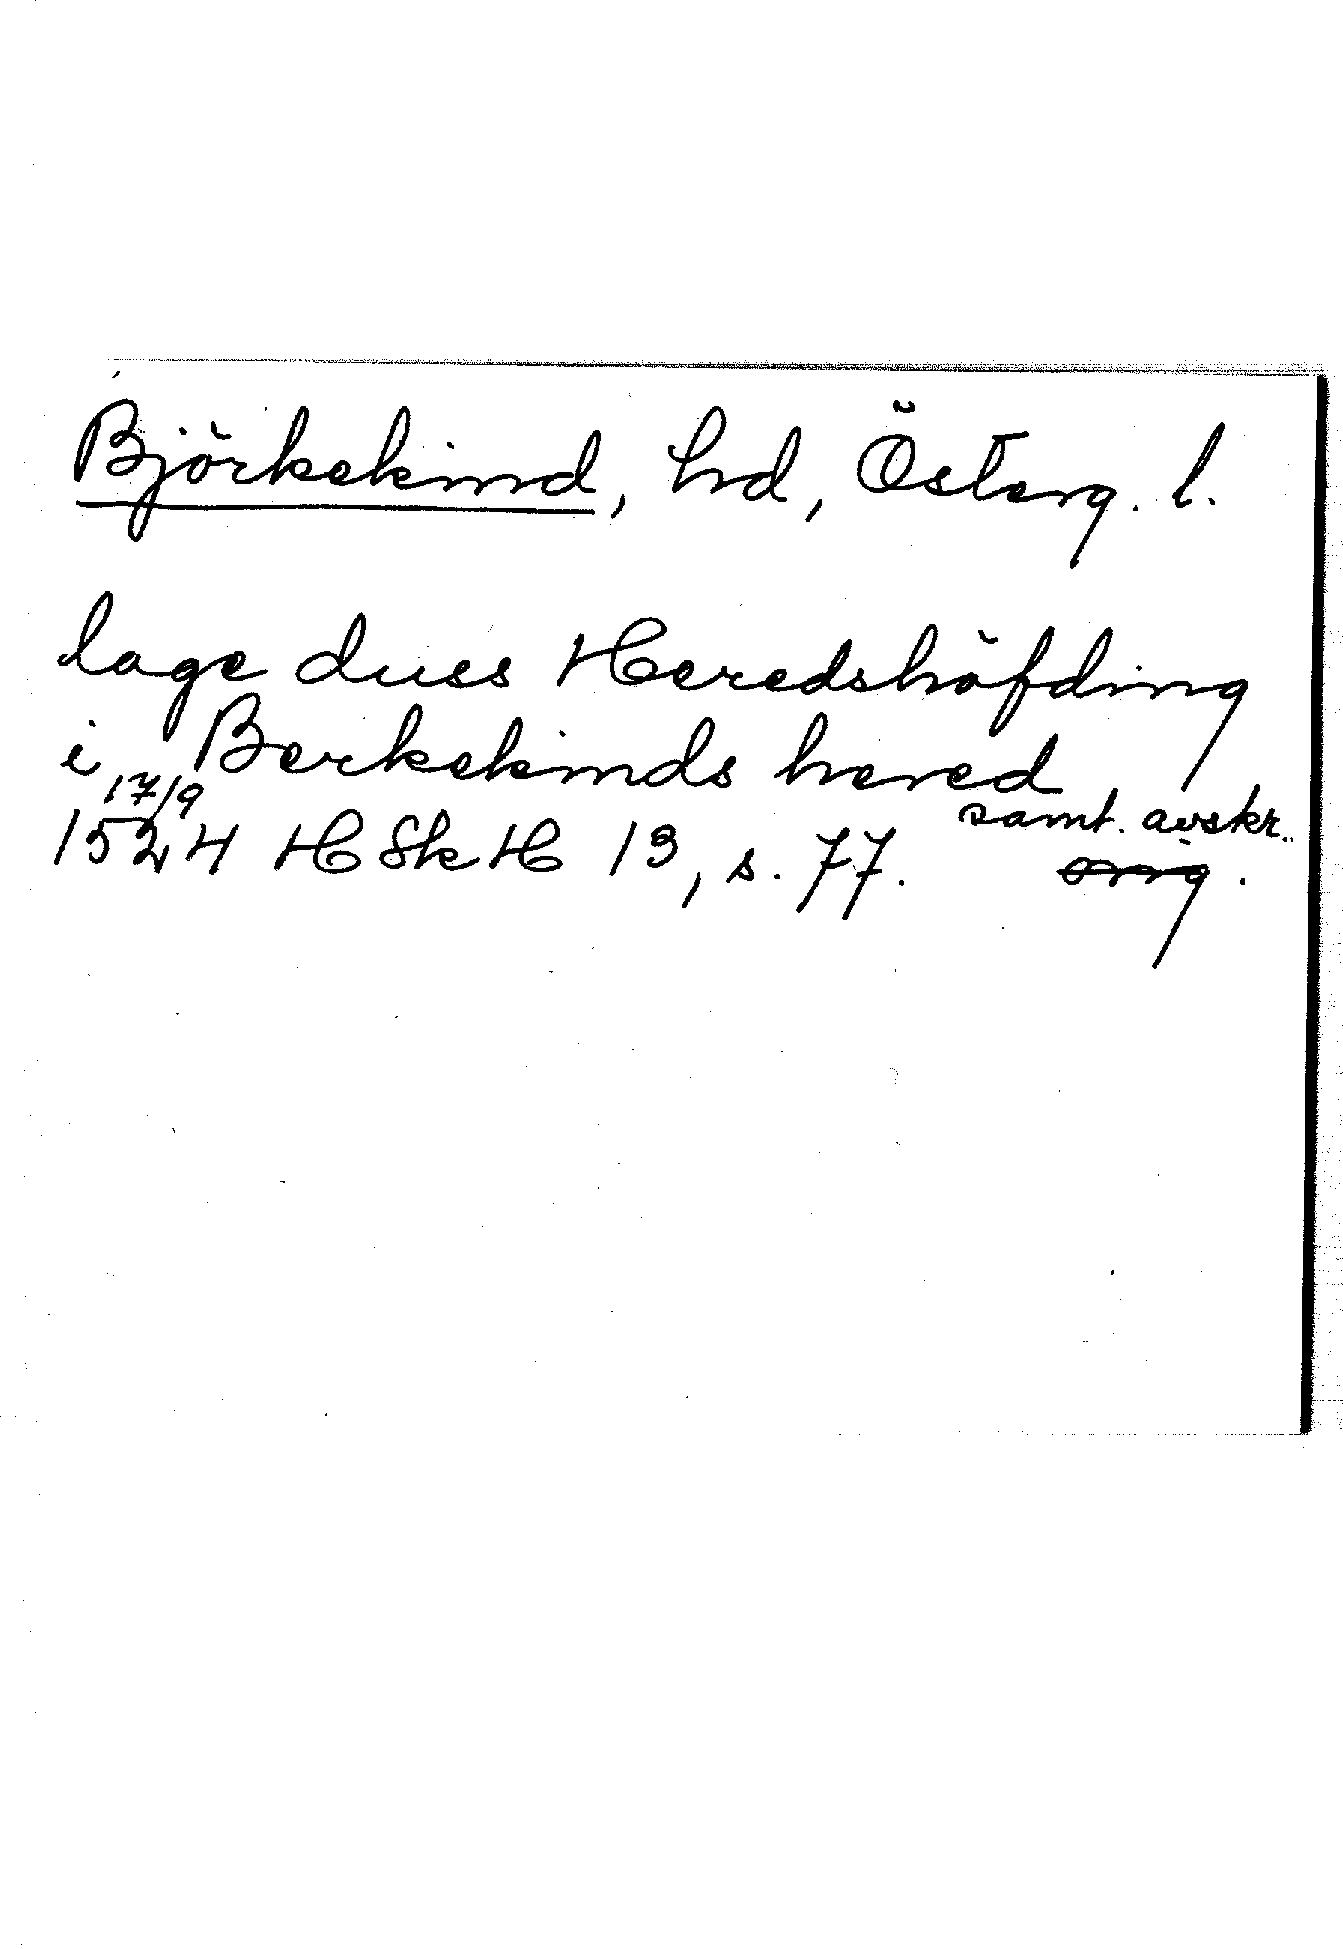 Björkekind, hd, Österg. l.
lage duss Heredshöfding
i Berkekinds hered
17/9 samt. avskr.
1524 HSkH 13, s. 77. orig.